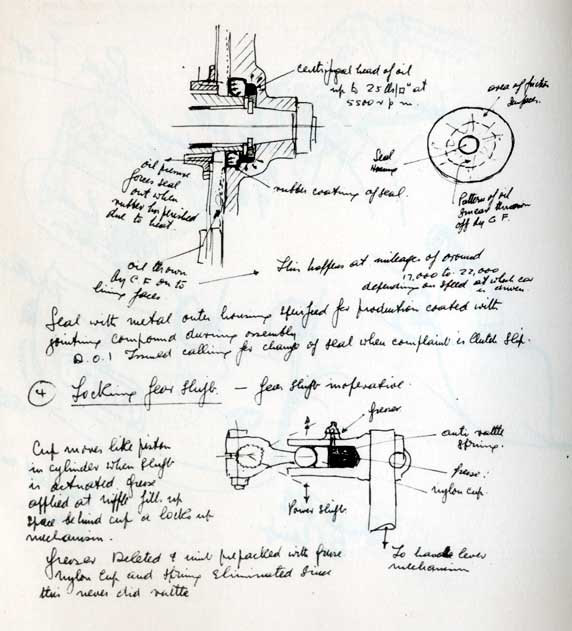 centrifugal head of oil
up to 25 lbs/□" at
5500 r p m.
area of friction
surfaces.
Seal
Housing
Pattern of oil
smear thrown
off by C.F.
oil pressure
forces seal
out when
rubber has perished
due to heat.
rubber coating of seal.
oil thrown
by C.F on to
lining faces
This happens at mileage of around
17,000 to 22,000
depending on speed at which car
is driven.
Seal with metal outer housing specified for production coated with
jointing compound during assembly
D.O.I issued calling for change of seal when complaint is Clutch Slip.
4 Locking Gear Shift. — Gear Shift inoperative.
Greaser
anti rattle
spring.
Grease.
nylon cup.
Power Shift
To hand lever
mechanism
Cup moves like piston
in cylinder when shift
is actuated. Grease
applied at nipple fills up
space behind cup & locks up
mechanism.
Greaser Deleted & unit prepacked with grease
Nylon Cup and Spring Eliminated since
this never did rattle